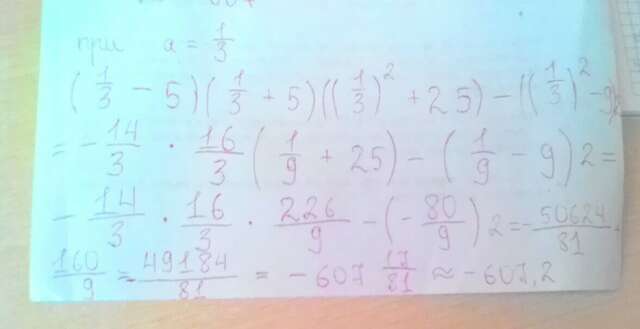 при a = 1/3
(1/3 - 5)(1/3 + 5)((1/3)² + 25) - ((1/3)² - 9)
= - 14/3 · 16/3 (1/9 + 25) - (1/9 - 9) 2 =
- 14/3 · 16/3 · 226/9 - (- 80/9) 2 = - 50624/81 -
160/9 = - 49184/81 = - 607 17/81 ≈ - 607,2